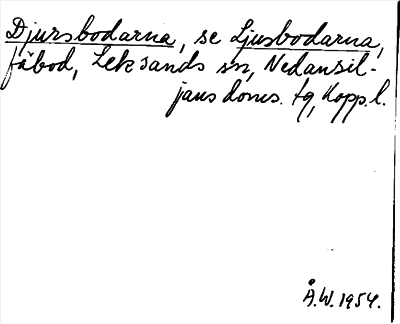 Djursbodarna, se Ljusbodarna,
fäbod, Leksands sn, Nedansil-
jans doms. tg, Kopp. l.
Å.W. 1954.